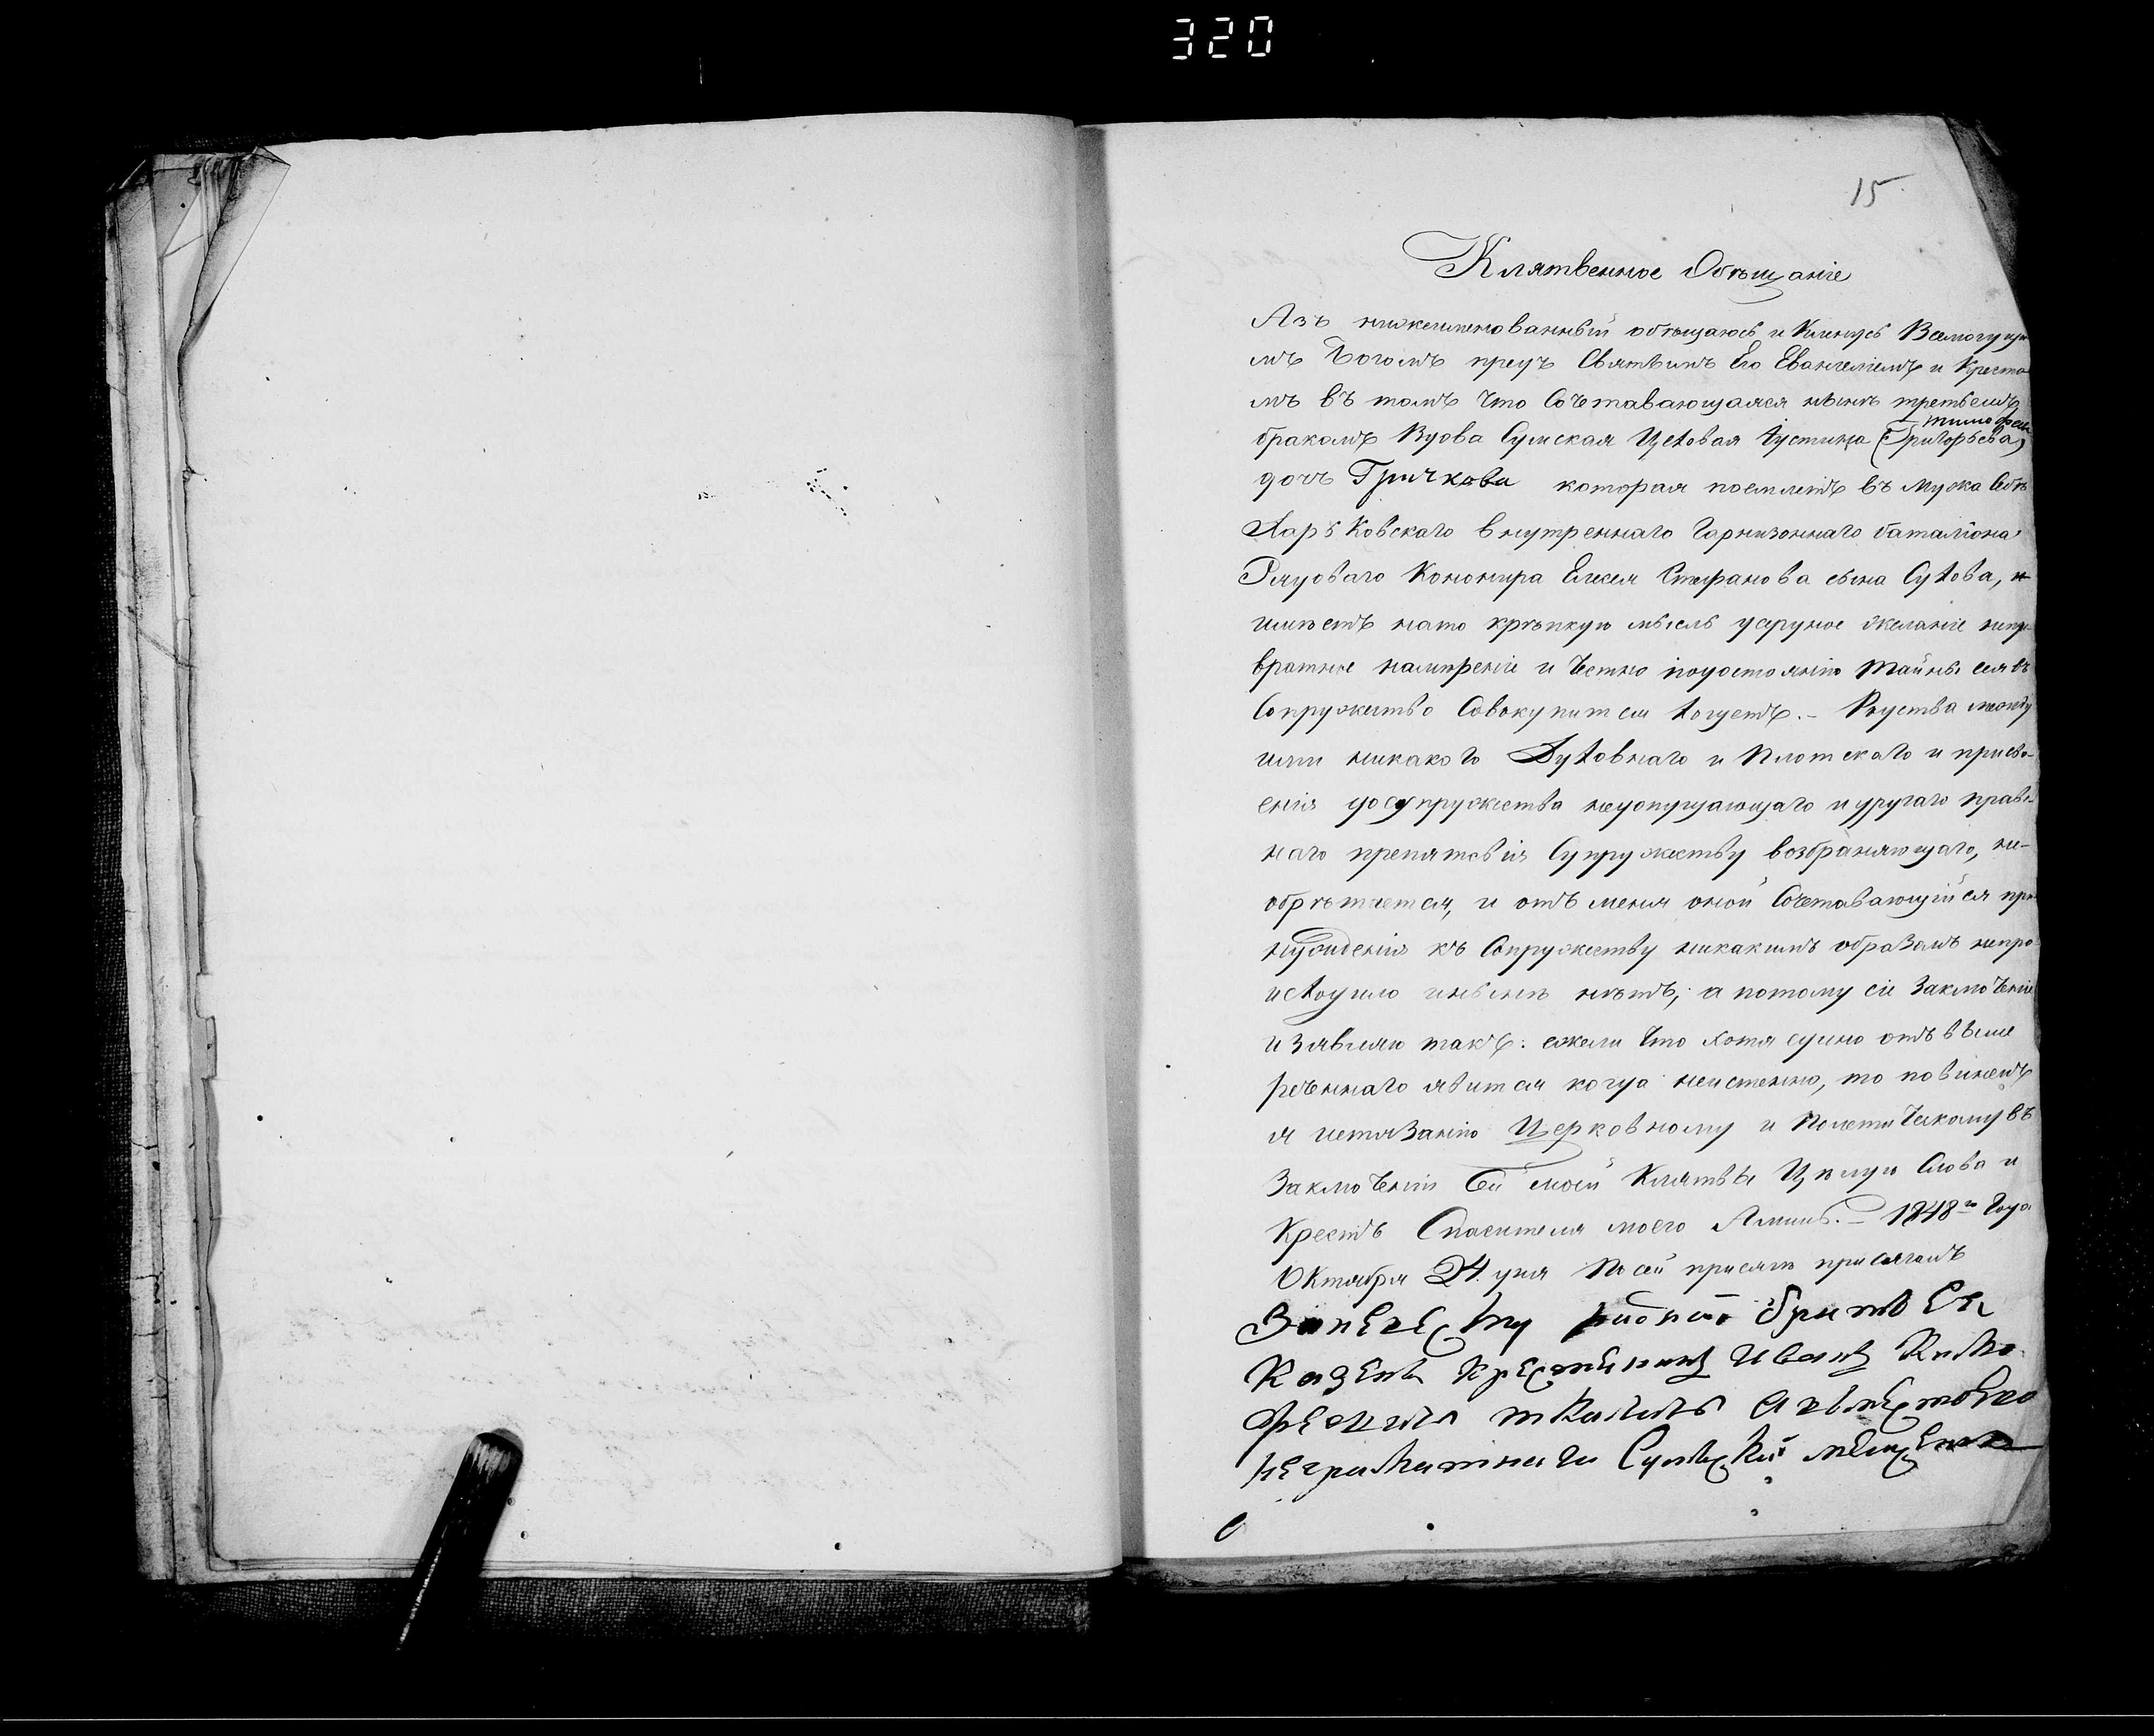 320
15
Клятвенное Обѣщаніе
Азъ нижеименованный обѣщаюсь и Клянусь Всемогущи
мъ Богомъ предъ Святымъ Его Евангеліемъ и Кресто
мъ въ томъ что Сочетавающаяся нынѣ третьемъ
Тимофеи
бракомъ Вдова Сумская Цеховая Іустина (Григорьева)
дочь Гричкова которая поемлетъ въ мужа Себѣ
Харьковскаго внутреннаго Гарнизоннаго баталіона
Рядоваго Кононира Елисея Стефанова сына Сухова, и
имѣетъ нато крѣпкую мысль усрдное желаніе непре
вратное намѣреніе и Честно подостоянію Тайны сея въ
Сопружество Совокупится хощетъ. – Родства между
ими никакого Духовнаго и Плотскаго и присво-
енія досупружества недопущающаго и другаго прави-
наго препятсвія Супружеству возбраняющаго, не-
обрѣтается, и отъ меня оной Сочетавающійся при
нужденія къ Сопружеству никакимъ образомъ непро
исходило инынѣ нѣтъ; а потому сіе Заключеніе
изявляю такъ: ежели Что хотя едино отъ выше
реченнаго явится когда неистенно, то повиненъ
я истязанію Церковному и Политическому въ
Заключеніи Сей моей Клятвы Цѣлую Слова и
Крестъ Спасителя моего Аминь. – 1848го Года
Октября 24. дня К сей присяги присягомъ
Иванъ
неграматнаго Сумский